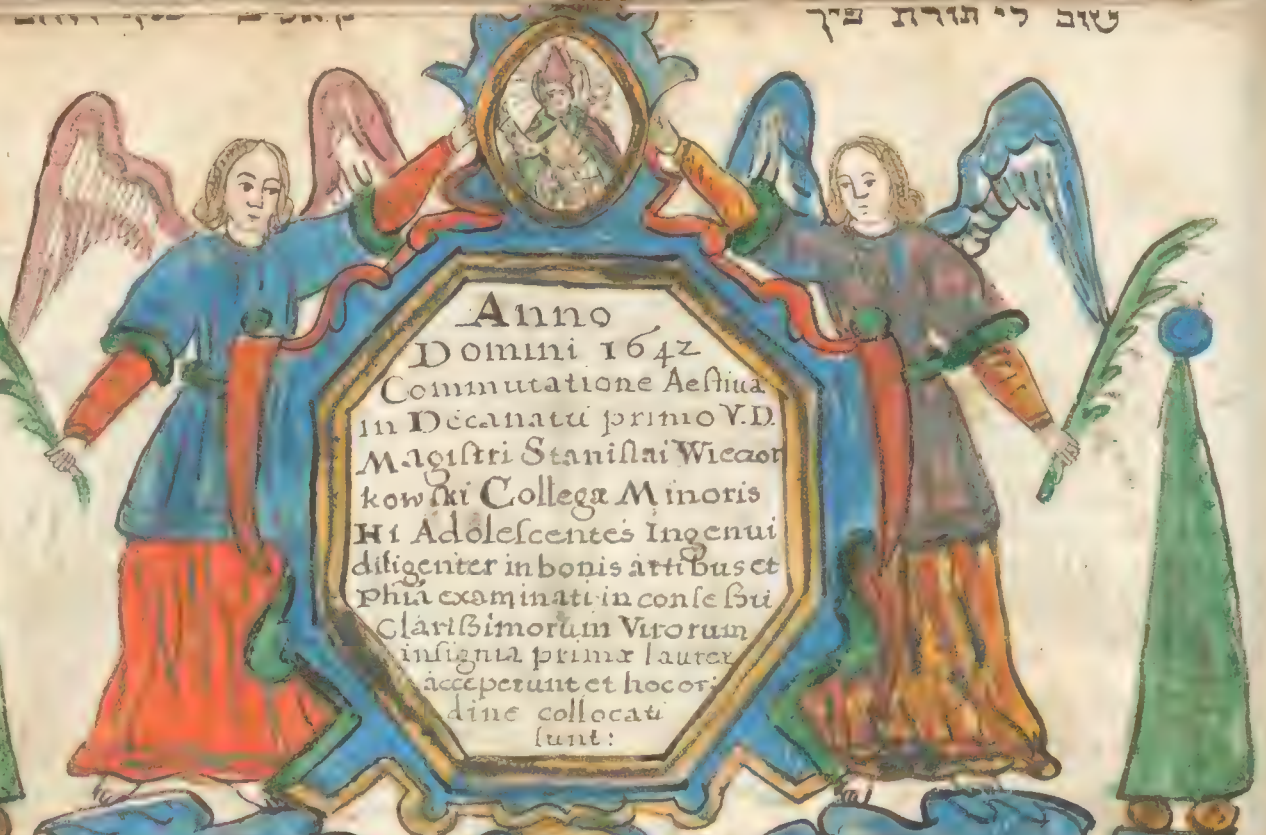 טוב לי תורת פיך
Anno
Domini 1642
Commutatione Aeſtiua
in Decanatu primo V.D.
Magiſtri Staniſlai Wieczor
kowſki Collegæ Minoris
Hi Adoleſcentes Ingenui
diligenter in bonis artibus et
Phiā examinati in conſeſsu
Clariſsimorum Virorum
inſignia primæ laureæ
acceperunt et hoc or
dine collocati
ſunt: